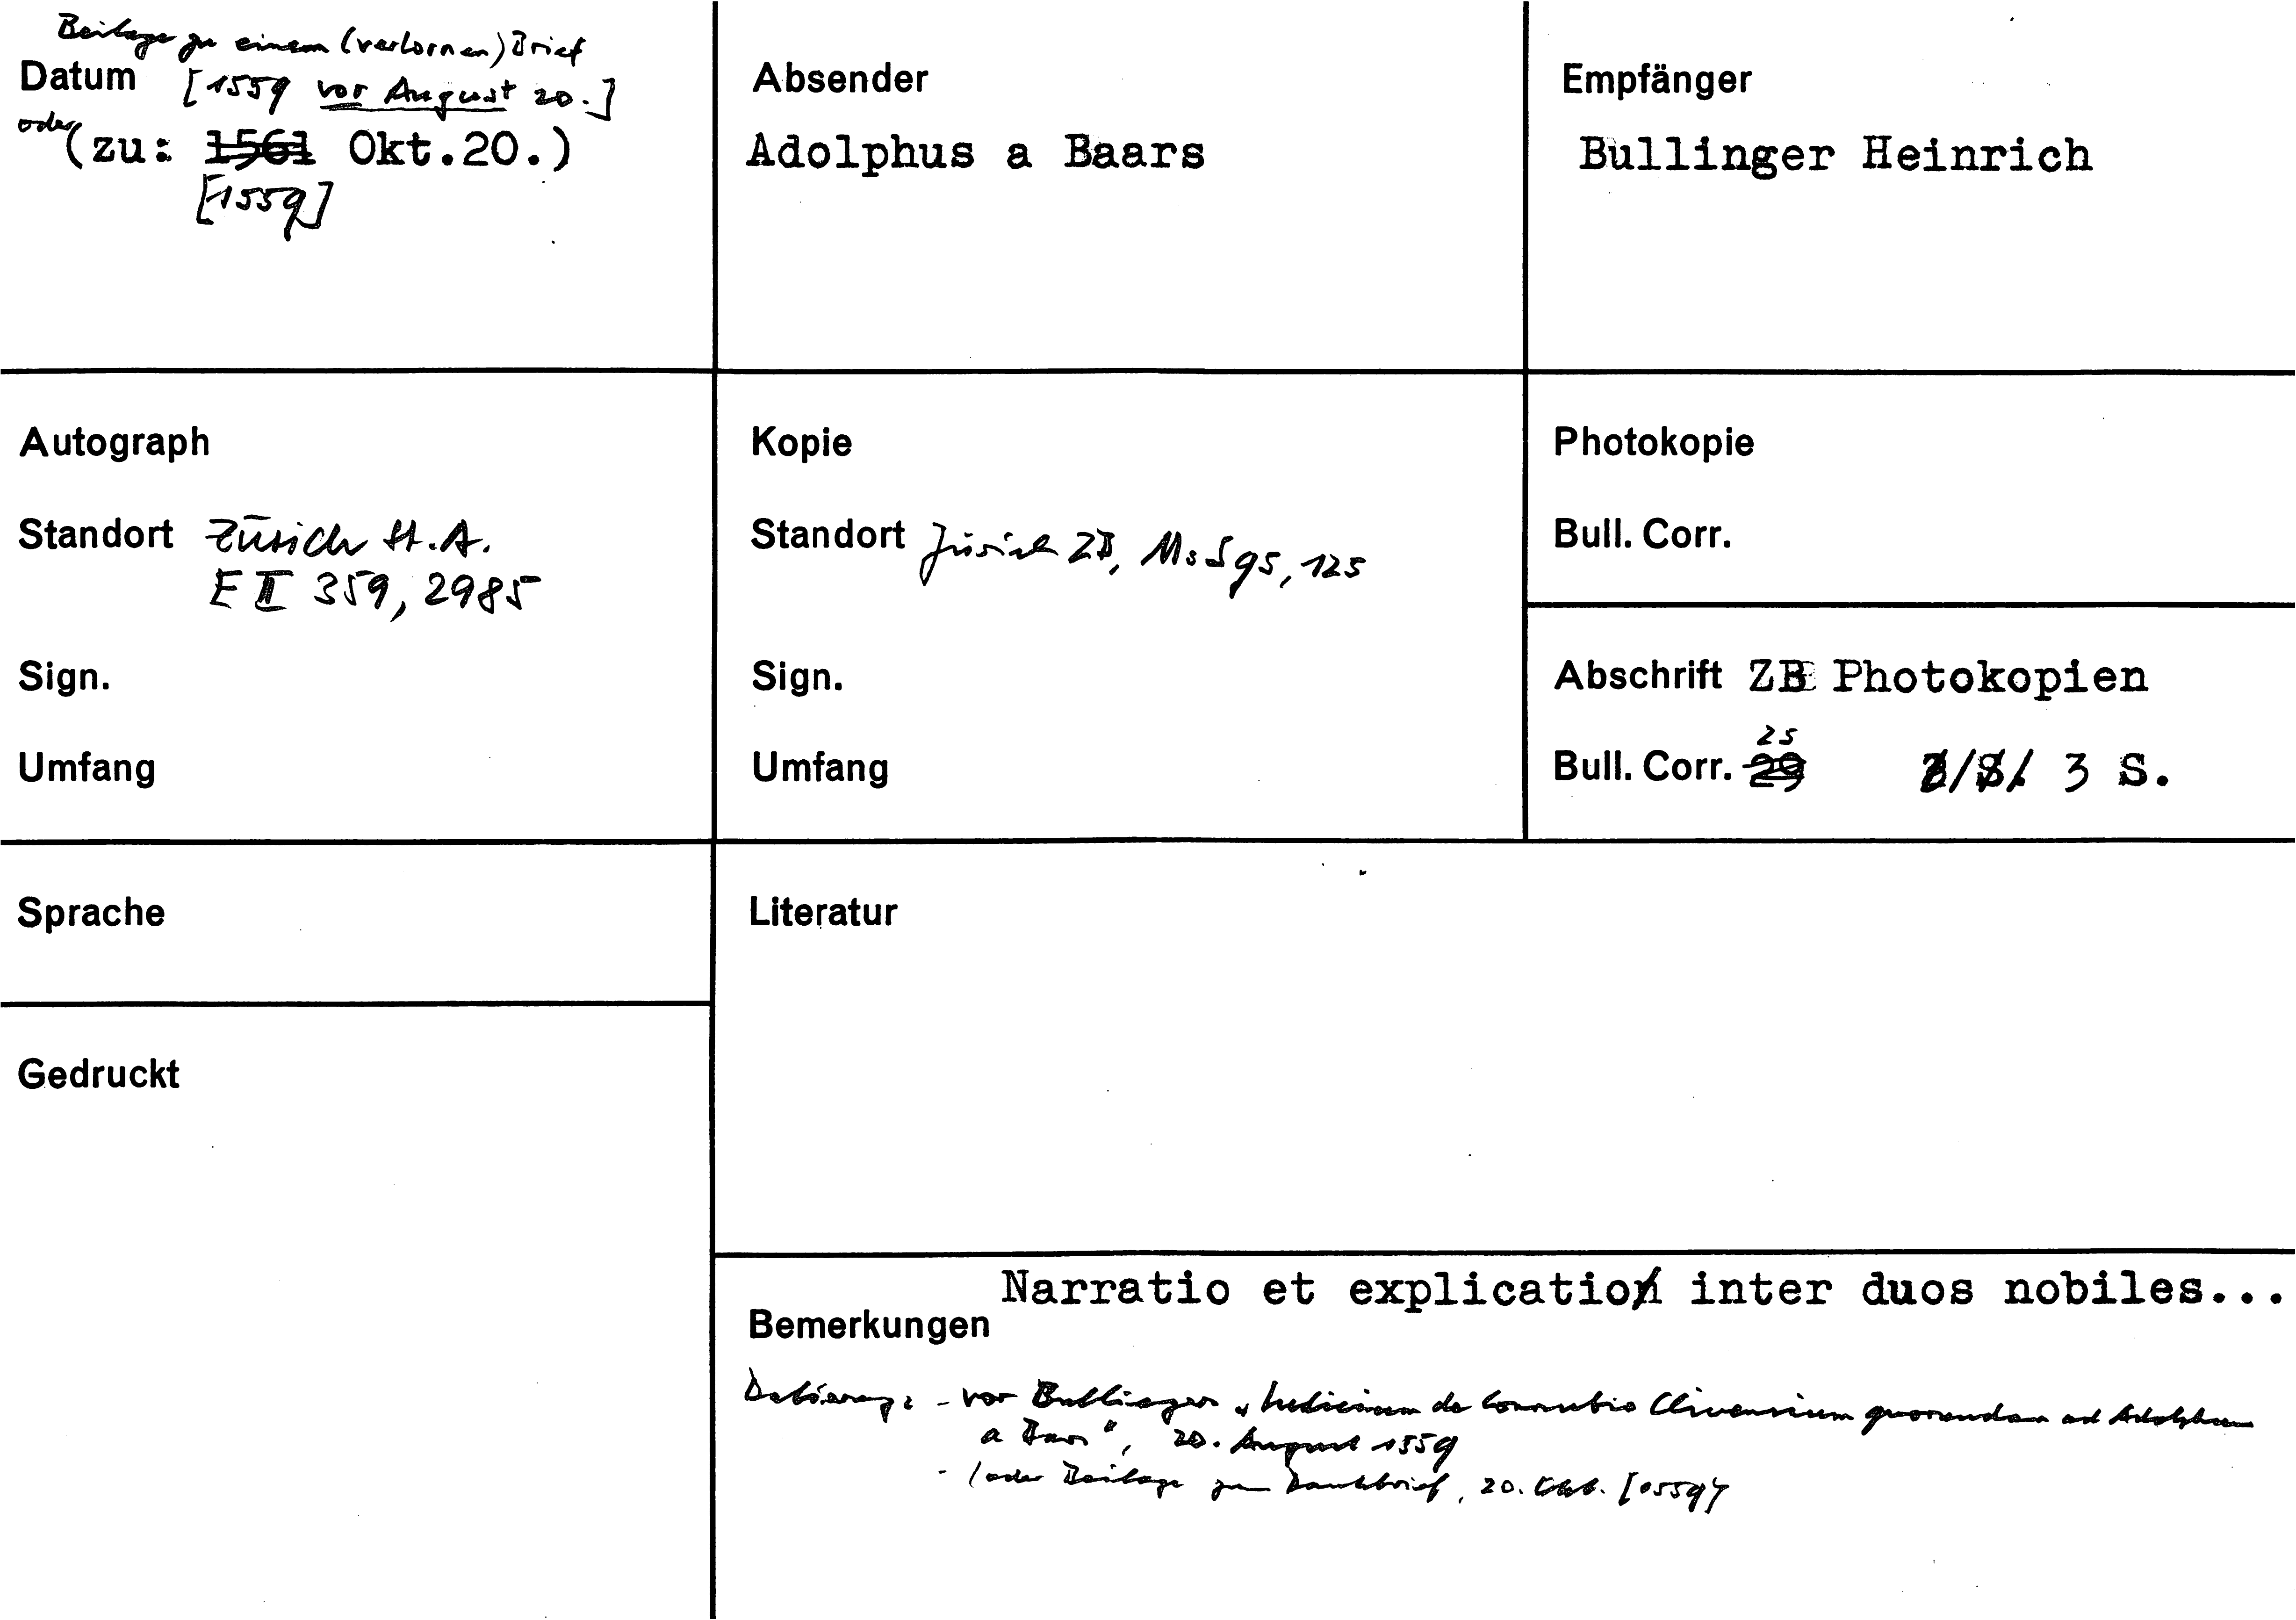 Beilage zu einem (verlornen) Brief
Datum [1559 vor August 20.]
oder (zu: 1561 Okt.20.)
[1559]
Absender
Adolphus a Baars
Empfänger
Bullinger Heinrich
Autograph
Standort Zürich St.A.
E II 359, 2985
Sign.
Umfang
Kopie
Standort Zürich ZB, Ms S 95, 125
Sign.
Umfang
Photokopie
Bull. Corr.
Abschrift ZB Photokopien
25
Bull. Corr. 29 3 S.
Sprache
Gedruckt
Literatur
Narratio et explication inter duos nobiles...
Bemerkungen
Datierung: - vor Bullinger „Iudicium de connubio Clivensium quorundam ad Adolphum
a Bars", 20. August 1559
- (oder Beilage zum Dankbrief, 20. Okt. [1559])